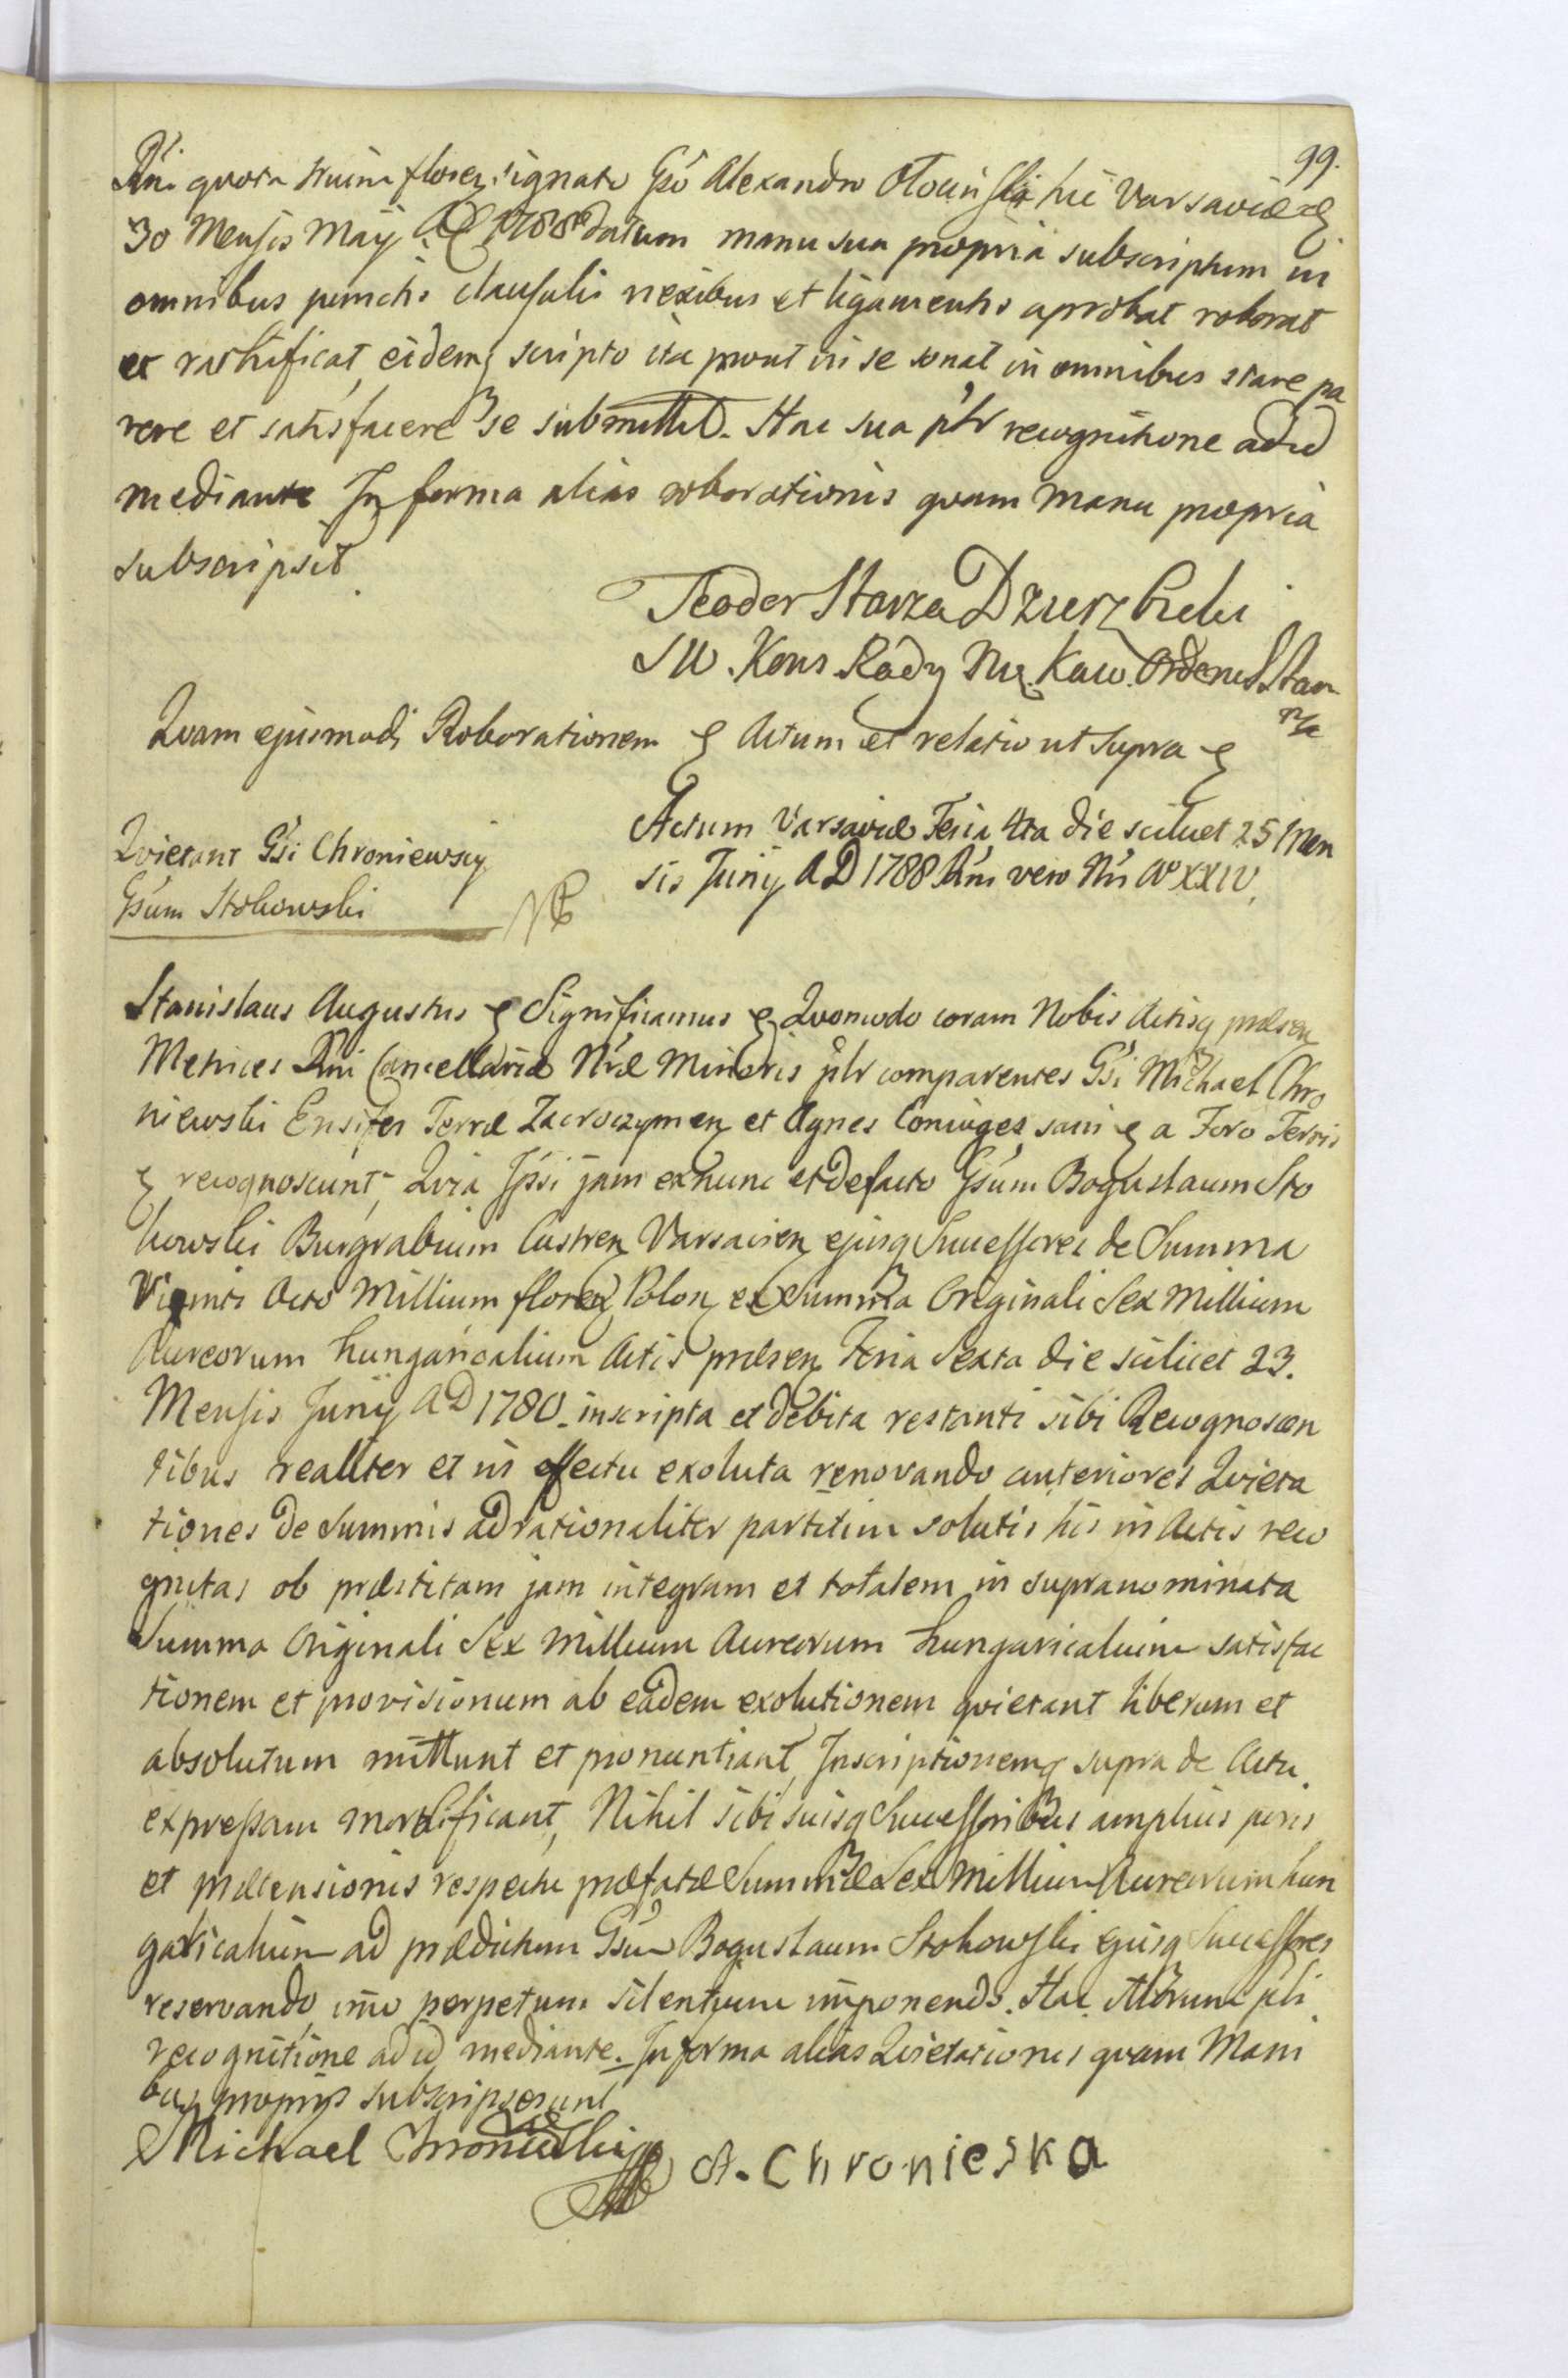 99.
Rńi quota Summ floren signato Gso Alexandro Otocinski hic Varsaviæ &
30 Mensis Maij AD 1788 datum manu sua propria subscriptum in
omnibus punctis clausulis nexibus et ligamentis aprobat roborat
et rathificat, eidemq scripto ita prout in se sonat in omnibus stare pa
rere et satisfacere se submittit. Hac sua pltr recognitione ad id
mediante In forma alias roborationis quam manu propria
subscripsit.
Teodor Starza Dzierzbicki
SW. Kons Rady Kaw. Orderu S Stan
mp
Quam ejusmodi Roborationem & Actum et relatio ut supra &
Actum Varsaviæ Feria 4ta die scilicet 25 Men
sis Junij AD 1788 Rńi vero Nri Ao XXIV.
Qvietant Gsi Chroniewscy
Gsum Stokowski
Stanislaus Augustus & Significamus & Quomodo coram Nobis Actisq præsen
Metrices Rńi Cancellariæ Nræ Minoris pltr comparentes Gsi Michael Chro
niewski Ensifer Terræ Zacroczymen et Agnes Coniuges sani & a Foro Terris
& recognoscunt, Qvia Ipsi jam ex nunc et de facto Gsum Bogustaum Sto
kowski Burgrabium Castren Varsavien ejusq Successores de Summa
Viginti Octo Millium floren Polon ex Summa Originali Sex Millium
Aureorum hungaricalium Actis præsen Feria Sexta die scilicet 23.
Mensis Junij AD 1780. inscripta et debita restanti sibi Recognoscen
tibus realiter et in effectu exoluta renovando anteriores Qvieta
tiones de Summis ad rationaliter partitim solutis his in Actis reco
gnitas ob præstitam jam integram et totalem in supranominata
Summa Originali Sex Millium Aureorum hungaricalium satisfac
tionem et provisionum ab eadem exolutionem qvietant liberum et
absolutum mittunt et pronuntiant, Inscriptionemq supra de Actu
expressam mortificant, Nihil sibi suisq Successoribus amplius juris
et prætensionis respectu præfatæ Summæ Sex Millium Aureorum hun
garicalium ad prædictum Gsum Bogustaum Stokowski ejusq Successores
reservando, imo perpetum silentium imponendo. Hac Allorum pli
recognitione ad id mediante. In forma alias Qvietationis quam Mani
bus proprijs subscripserunt
Michael Chroniewski mp A. Chronieska